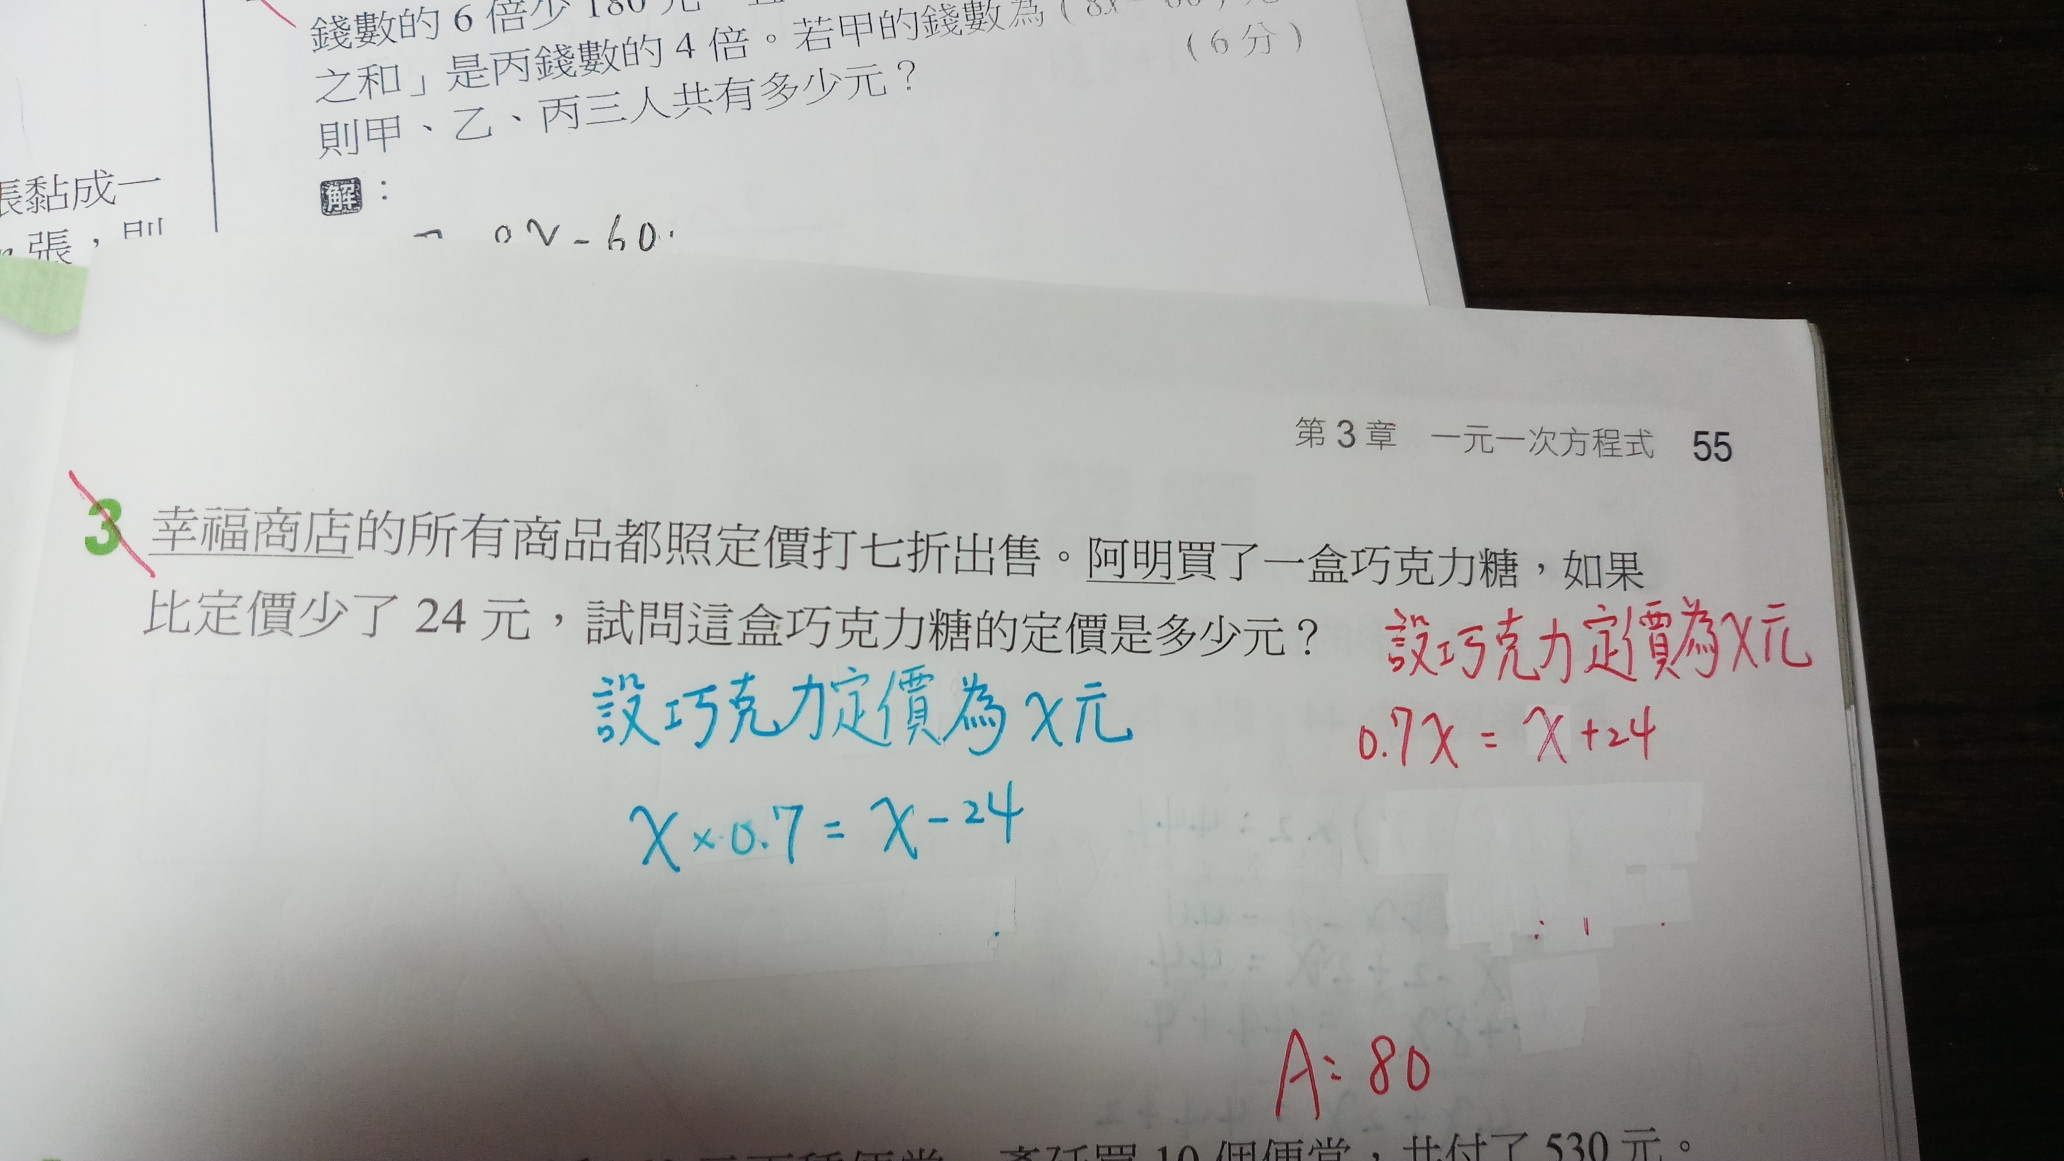 錢數的 6 倍少 180 元
之和」是丙錢數的 4 倍。若甲的錢數為（8x－60）元
則甲、乙、丙三人共有多少元？
（6 分）
解：
張黏成一
張，則
8x-60
第 3 章 一元一次方程式 55
3 幸福商店的所有商品都照定價打七折出售。阿明買了一盒巧克力糖，如果
比定價少了 24 元，試問這盒巧克力糖的定價是多少元？
設巧克力定價為x元
0.7x = x+24
設巧克力定價為x元
x×0.7 = x-24
A: 80
買 10 個便當，共付了 530 元。